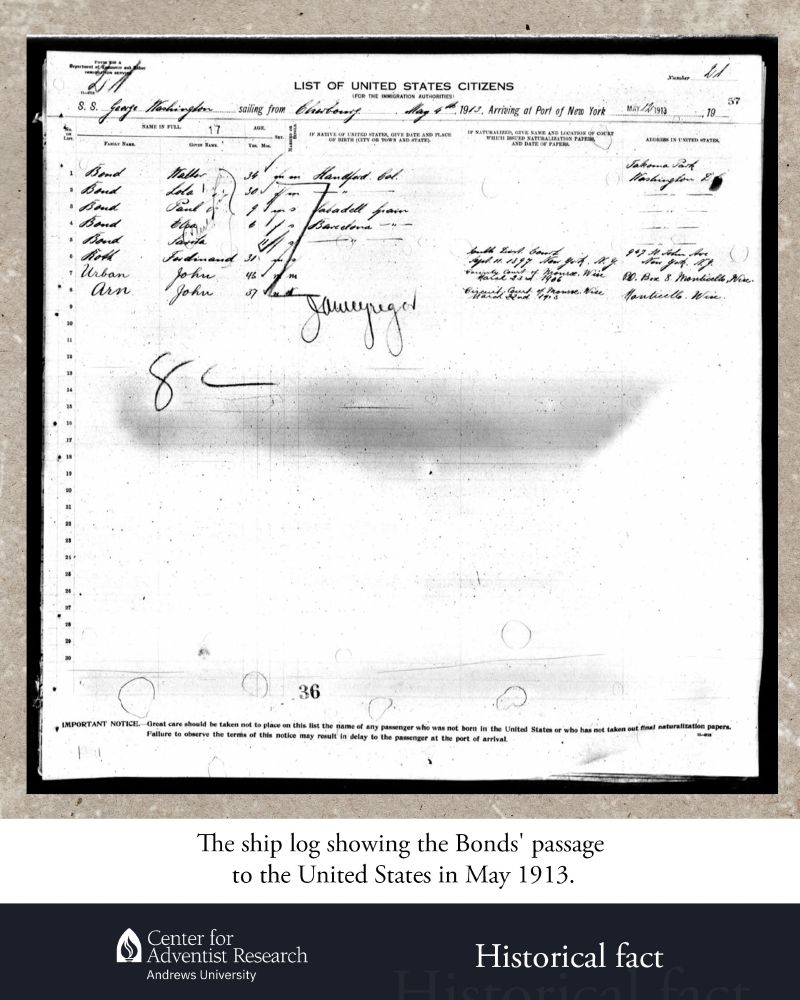 Form 500 A
Department of Commerce and Labor
IMMIGRATION SERVICE
Number 21
57
LIST OF UNITED STATES CITIZENS
(FOR THE IMMIGRATION AUTHORITIES)
S. S. George Washington sailing from Cherbourg, May 4th, 1913, Arriving at Port of New York MAY 12 1913, 19
No. on List. NAME IN FULL. 17 AGE. SEX. IF NATIVE OF UNITED STATES, GIVE DATE AND PLACE OF BIRTH (CITY OR TOWN AND STATE). IF NATURALIZED, GIVE NAME AND LOCATION OF COURT WHICH ISSUED NATURALIZATION PAPERS, AND DATE OF PAPERS. ADDRESS IN UNITED STATES.
FAMILY NAME. GIVEN NAME. Yrs. Mos.
1 Bond Walter 34 m m Handford Cal. Takoma Park Washington D C
2 Bond Lola 30 f m " "
3 Bond Paul 9 m s Sabadell Spain
4 Bond 6 f s Barcelona - " -
5 Bond
6 Roth Ferdinand 31 m Sept 11. 1897 New York, N. Y. 947 N John Ave New York. N.Y.
7 Urban John 46 m m County Court of Monroe, Wisc March 23rd 1906 P.O. Box 8 Monticello, Wisc.
8 Arn John 37 Circuit Court of Monroe Wisc March 22nd 1913 Monticello. Wisc.
9
10
11
12
13
8
14
15
16
17
18
19
20
21
22
23
24
25
26
27
28
29
30
36
IMPORTANT NOTICE.—Great care should be taken not to place on this list the name of any passenger who was not born in the United States or who has not taken out final naturalization papers.
Failure to observe the terms of this notice may result in delay to the passenger at the port of arrival.
The ship log showing the Bonds' passage
to the United States in May 1913.
Center for
Adventist Research
Andrews University
Historical fact
Historical fact